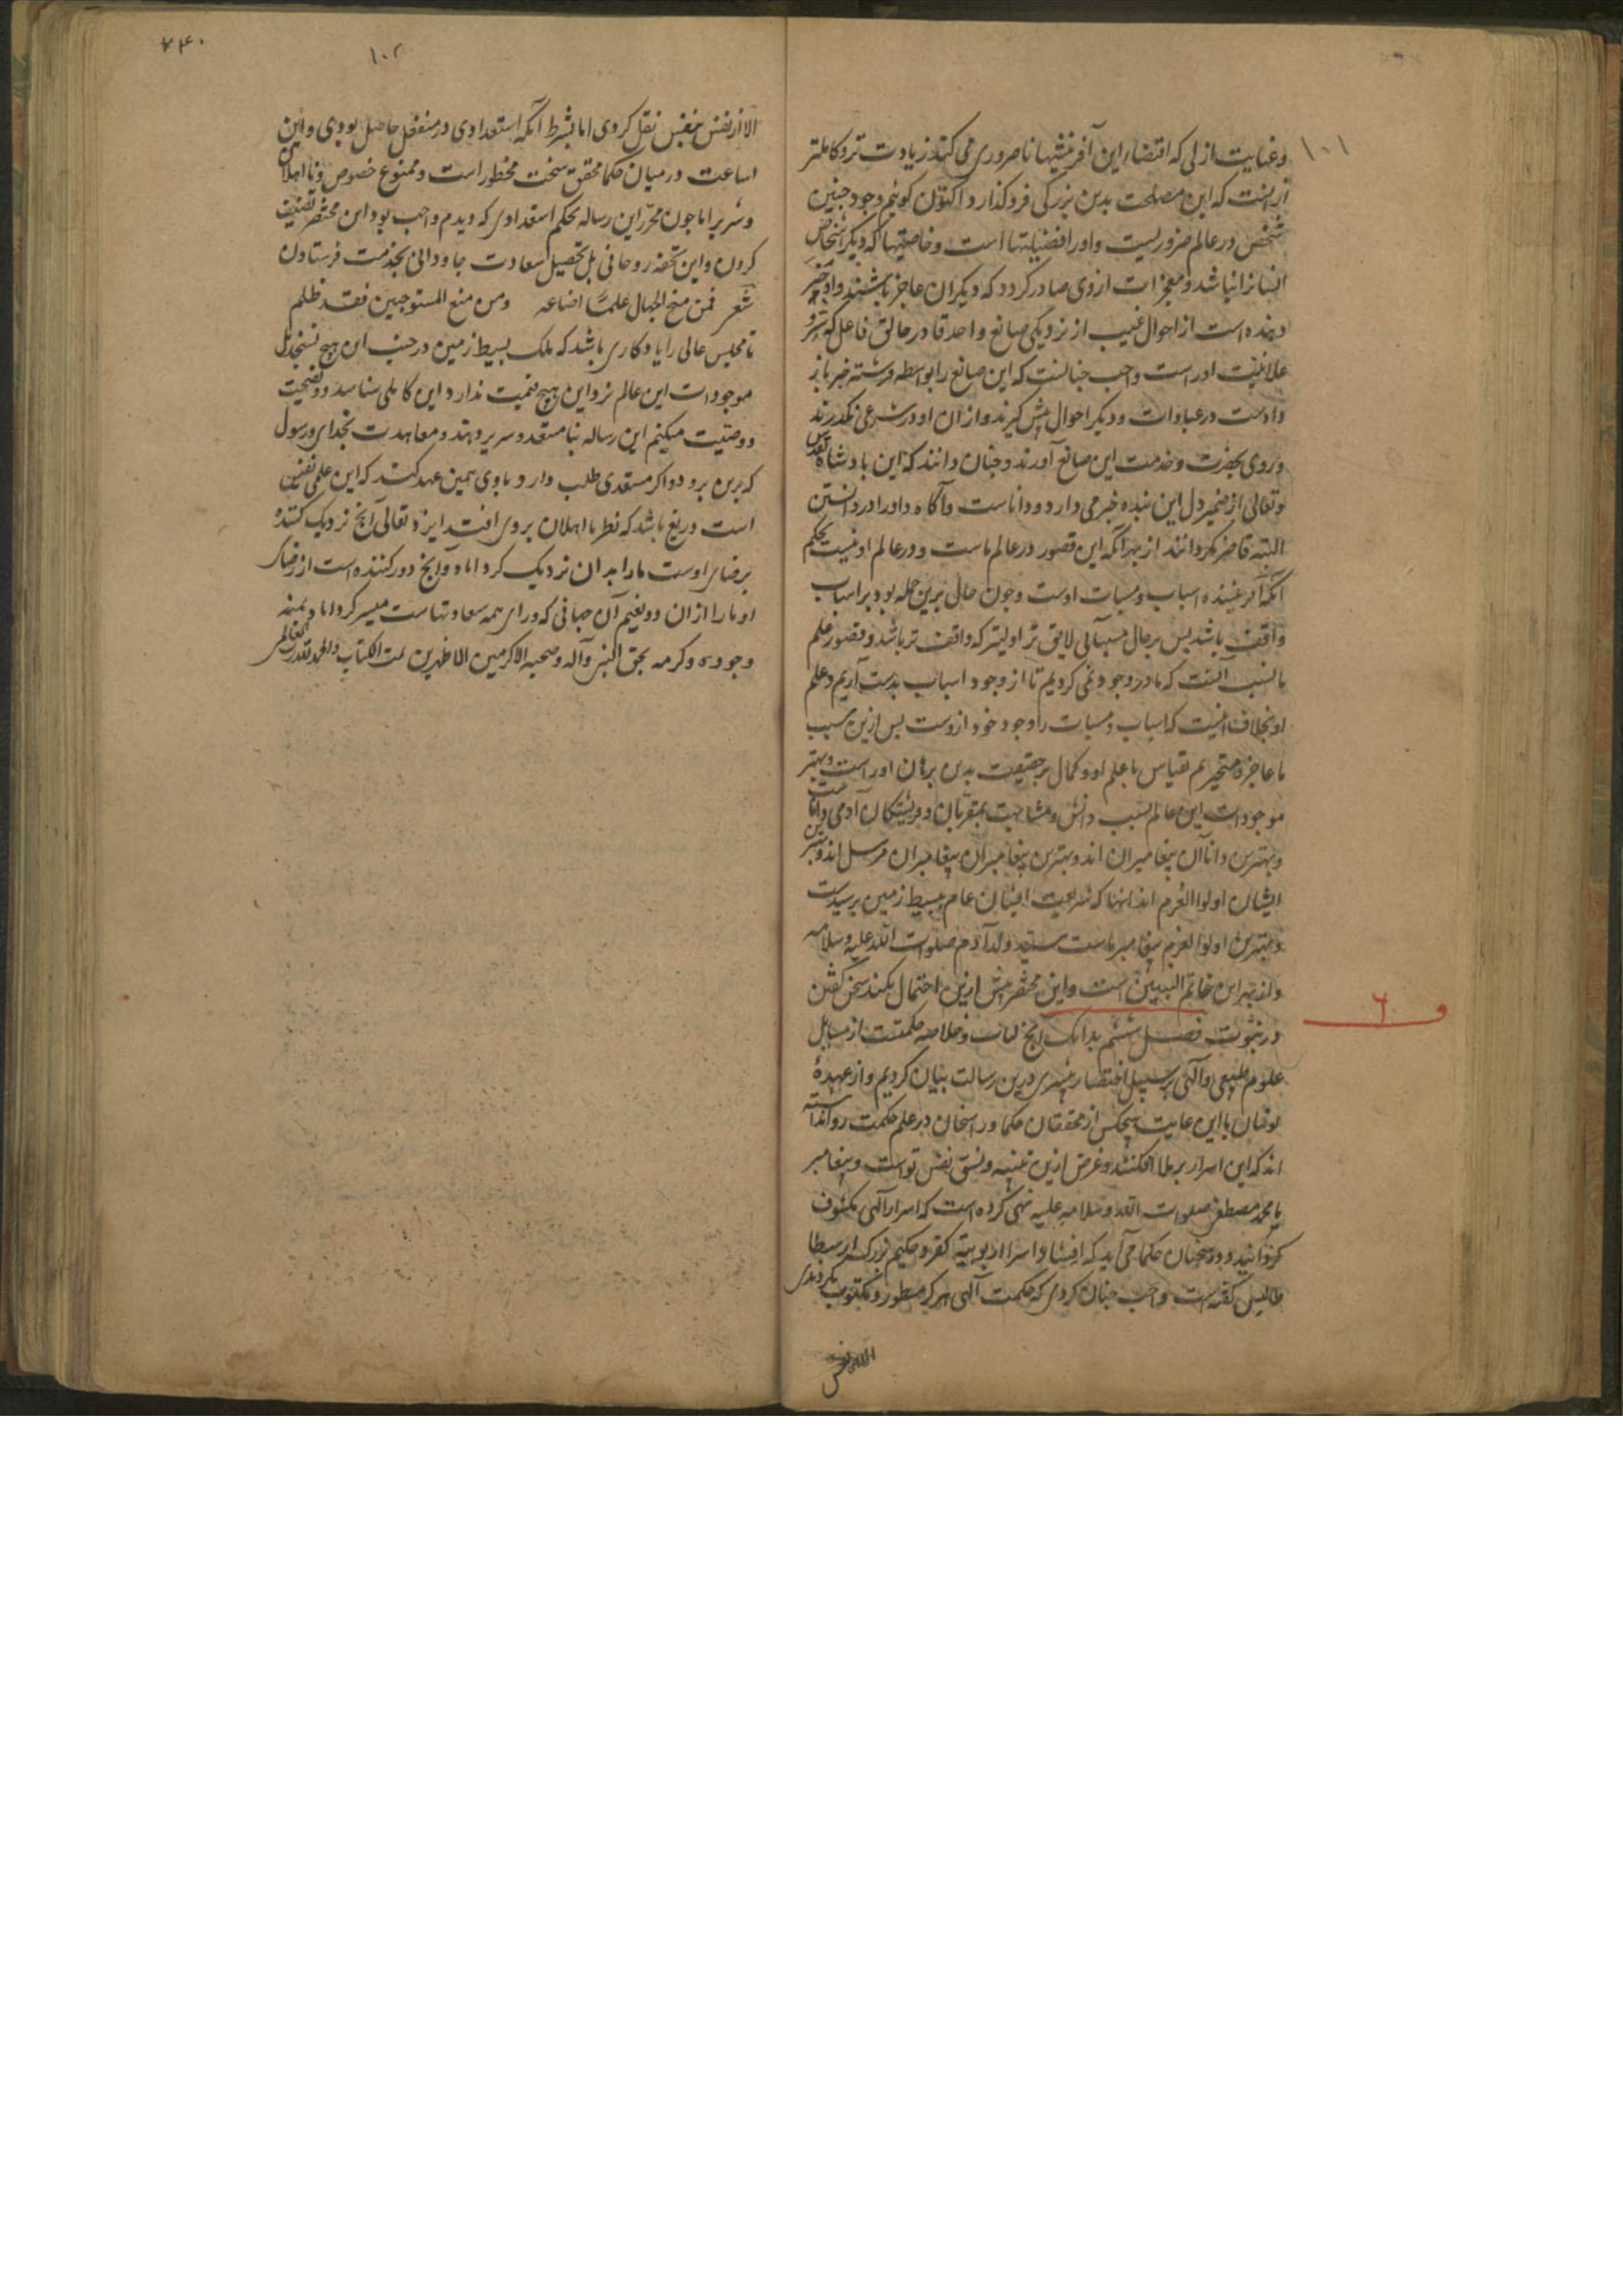 ۱۰۱
وعنایت ازلی که اقتضاء این آفرینشها ناضروری می کند زیادت تر و کاملتر
از آنست که این مصلحت بدین بزرکی فروکذارد اکنون کوئیم وجود چنین
شخص در عالم ضروریست واورا فضیلتها است وخاصیتها که دیکر اشخاص
انسانرا نباشد و معجزات ازوی صادر کردد که دیکران عاجز باشند واو خبر
دهنده است از احوال غیب از نزدیکی صانع واحد قادر خالق فاعل که سر و
علانیت اوراست واجب چنانست که این صانع را بواسطه فرشته خبر باز
دادست در عبادات ودیکر احوال پیش کیرند واز آن او در شرعی نکذرند
وروی بحضرت وخدمت این صانع آورند وچنان دانند که این بادشاه تقدس
وتعالی از ضمیر دل این بنده خبر می دارد وداناست وآکاه واورا در دانستن
البته قاصر نکردانند از بهر آنکه این قصور در عالم ماست ودر عالم او نیست بحکم
آنکه آفریننده اسباب ومسببات اوست وچون حال برین جمله بود بر اسباب
واقف باشد بس بر حال مسببات لایق تر اولیتر که واقف تر باشد وقصور علم
ما بسبب آنست که ما در وجود نمی کردیم تا از وجود اسباب بدست آریم وعلم
او بخلاف اینست که اسباب ومسببات را وجود خود ازوست بس ازین سبب
ما عاجز ومتحیریم بقیاس با علم او وکمال بر حقیقت بدین برهان اوراست وبهتر
موجودات این عالم بسبب دانش ومشابهت بمقربان وفریشتکان آدمی داناست
وبهترین دانایان پیغامبران اند وبهترین پیغامبران پیغامبران مرسل اند وبهترین
ایشان اولوا العزم اند آنها که شریعت ایشان عام ببسیط زمین برسیدست
وبهترین اولوا العزم پیغامبر ماست سید ولد آدم صلوات الله علیه وسلامه
واز بهر این خاتم النبیین است واین مختصر بیش ازین احتمال نکند سخن کفتن
در نبوت فصل ششم بدانک آنچ لباب وخلاصه حکمتست از مسایل
علوم طبیعی وآلهی بر سبیل اختصار درین رسالت بیان کردیم واز عهدهٔ
با این غایت هیچکس از محققان حکما وراسخان در علم حکمت روا نداشته
اند که این اسرار بر ملا افکنند وغرض ازین تنبیه نفس تو است وپیغامبر
یا محمد مصطفی صلوات الله وسلامه علیه نهی کرده است که اسرار آلهی مکشوف
کردانید ودر سخنان حکما می آید که افشاء اسرار الربوبیة کفر وحکیم بزرک ارسطا
طالیس کفته است واجب چنان کردی که حکمت آلهی هرکز مسطور ومکتوب نکردندی
الا از نفس
۶
۱۰۲
۲۴۰
الا از نفس بنفس نقل کردی اما بشرط آنکه استعدادی در منفعل حاصل بودی واین
اساعت در میان حکما محقق سخت محظور است وممنوع خصوص وبا اهلان
وشریر اما چون محرر این رساله بحکم استعدادی که دیدم واجب بود این مختصر تصنیف
کردن واین تحفه روحانی بل تحصیل سعادت جاودانی بخدمت فرستادن
شعر فمن منح الجهال علما اضاعه ومن منع المستوجبین فقد ظلم
تا مجلس عالی را یادکاری باشد که ملک بسیط زمین در جنب این هیچ نسنجد بل
موجودات این عالم نزد این هیچ قیمت ندارد این کاملی شناسد ونصیحت
ووصیت میکنم این رساله بنا مستعد وشریر ندهد ومعاهدت بخدای ورسول
که برین برود واکر مستعدی طلب دارد با وی همین عهد کند که این علمی نفیس
است دریغ باشد که نظر نااهلان بروی افتد ایزد تعالی آنچ نزدیک کننده
برضای اوست ما را بدان نزدیک کرداناد وآنچ دور کننده است از رضای
او ما را از آن دور ونعیم آن جهانی که ورای همه سعادتهاست میسر کرداناد بمنه
وجوده وکرمه بحق النبی وآله وصحبه الاکرمین الاطهرین تمت الکتاب والحمد لله رب العالمین